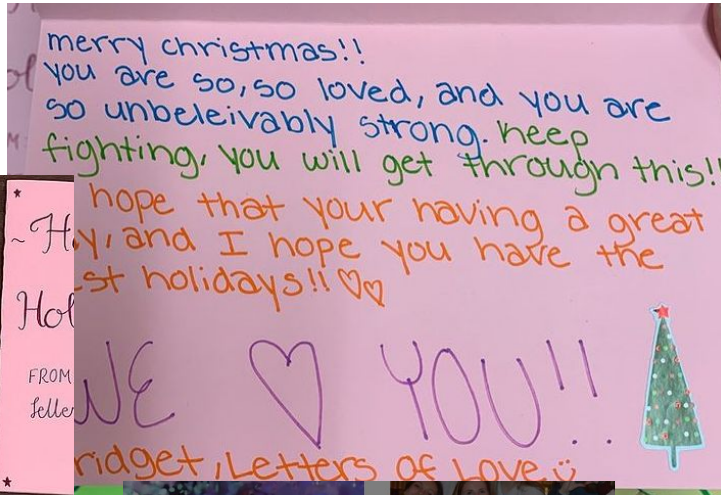 merry christmas!!
you are so, so loved, and you are
so unbeleivably strong. keep
fighting, you will get through this!!
hope that your having a great
and I hope you have the
holidays!! ♡♡
WE ♡ YOU!!
Letters of Love ü
FROM